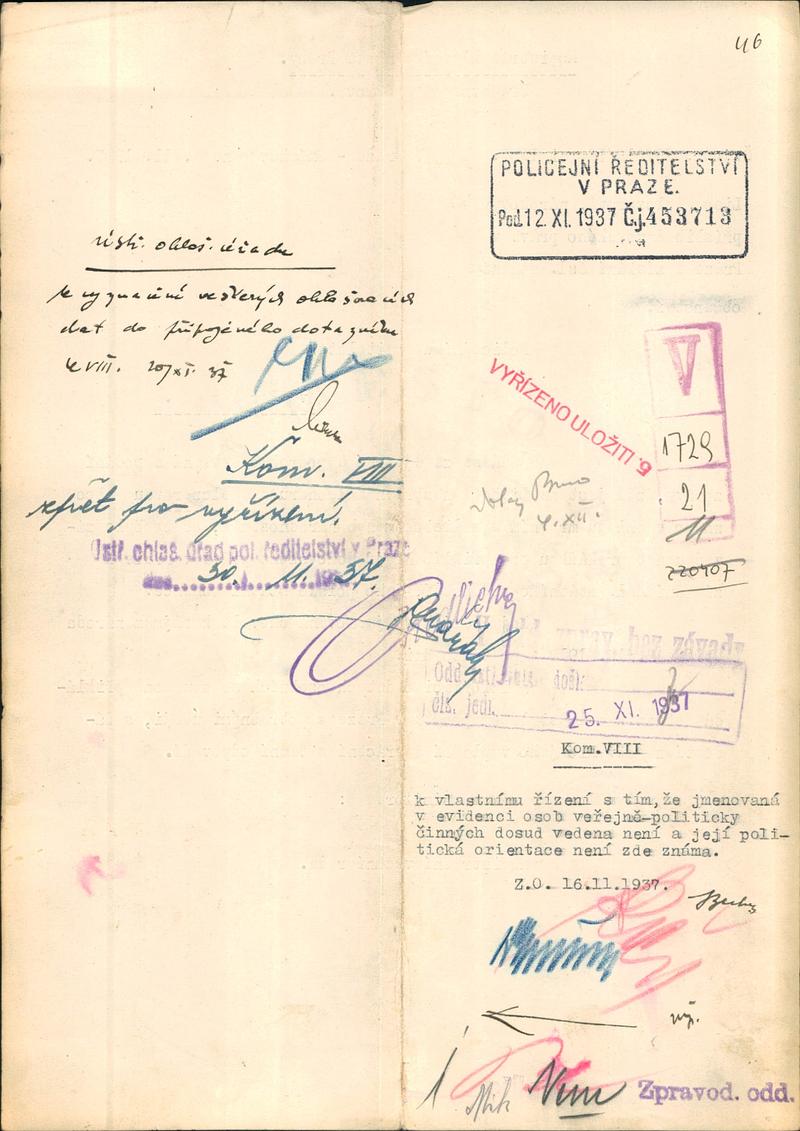 46
POLICEJNÍ ŘEDITELSTVÍ
V PRAZE.
Pod.12. XI. 1937 Č.j.453713
úst. ohlaš. úřadu
k vyznačení veškerých ohlašovacích
dat do připojeného dotazníku
K VIII. 20/XI. 37
Kom. VIII
zpět pro vyřízení.
Ústř. ohlaš. úřad pol. ředitelství v Praze
30. 11. 37.
V
1729
21
11
220407
VYŘÍZENO ULOŽITI
4. XII.
bez závady
Odd. došlo:
čís. jedn.
25. XI. 1937
Kom.VIII
k vlastnímu řízení s tím,že jmenovaná
v evidenci osob veřejně-politicky
činných dosud vedena není a její poli-
tická orientace není zde známa.
Z.O. 16.11.1937.
Zpravod. odd.